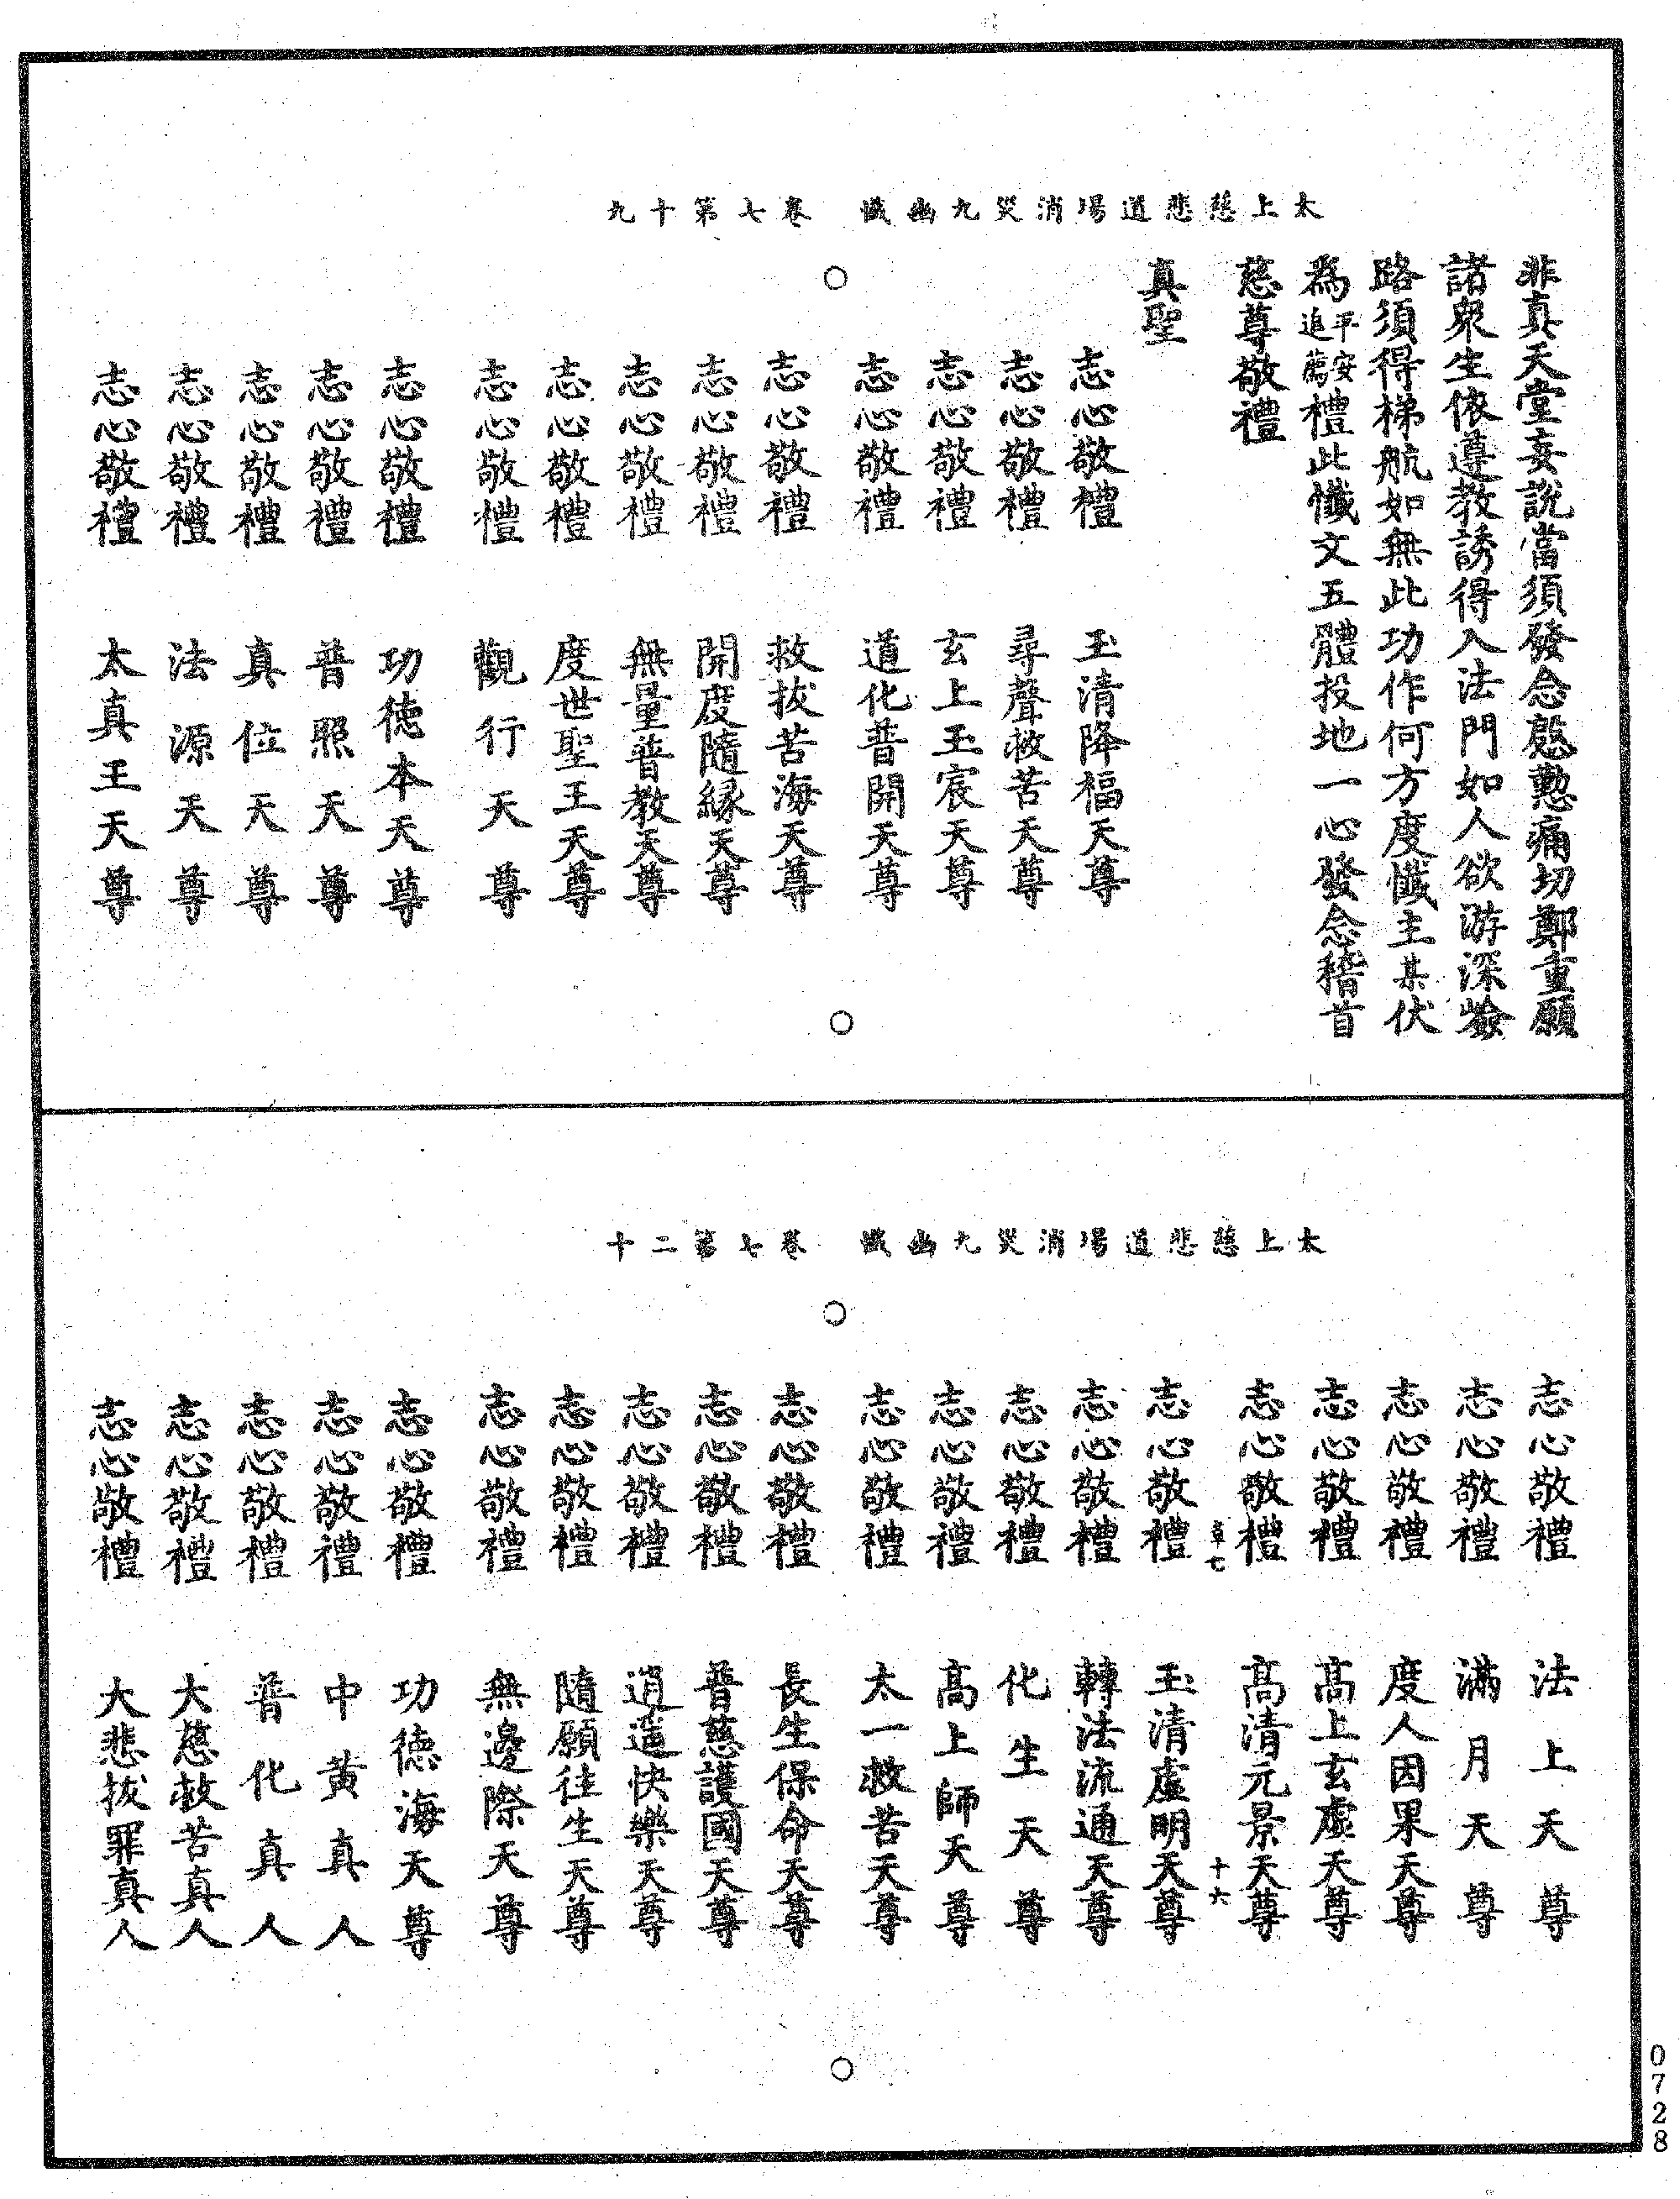 太上慈悲道場消災九幽懺　卷七第十九
非真天堂妄說當須發念慇懃痛切鄭重願
諸衆生依遵教誘得入法門如人欲游深嶮
路須得梯航如無此功作何方度懺主某伏
為平安追薦禮此懺文五體投地一心發念稽首
慈尊敬禮
真聖
志心敬禮　玉清降福天尊
志心敬禮　尋聲救苦天尊
志心敬禮　玄上玉宸天尊
志心敬禮　道化普開天尊
志心敬禮　救拔苦海天尊
志心敬禮　開度隨緣天尊
志心敬禮　無量普教天尊
志心敬禮　度世聖王天尊
志心敬禮　觀行天尊
志心敬禮　功德本天尊
志心敬禮　普照天尊
志心敬禮　真位天尊
志心敬禮　法源天尊
志心敬禮　太真王天尊
太上慈悲道場消災九幽懺　卷七第二十
志心敬禮　法上天尊
志心敬禮　滿月天尊
志心敬禮　度人因果天尊
志心敬禮　高上玄虛天尊
志心敬禮　高清元景天尊
七　十六
志心敬禮　玉清虛明天尊
志心敬禮　轉法流通天尊
志心敬禮　化生天尊
志心敬禮　高上師天尊
志心敬禮　太一救苦天尊
志心敬禮　長生保命天尊
志心敬禮　普慈護國天尊
志心敬禮　逍遥快樂天尊
志心敬禮　隨願往生天尊
志心敬禮　無邊際天尊
志心敬禮　功德海天尊
志心敬禮　中黃真人
志心敬禮　普化真人
志心敬禮　大慈救苦真人
志心敬禮　大悲拔罪真人
0728